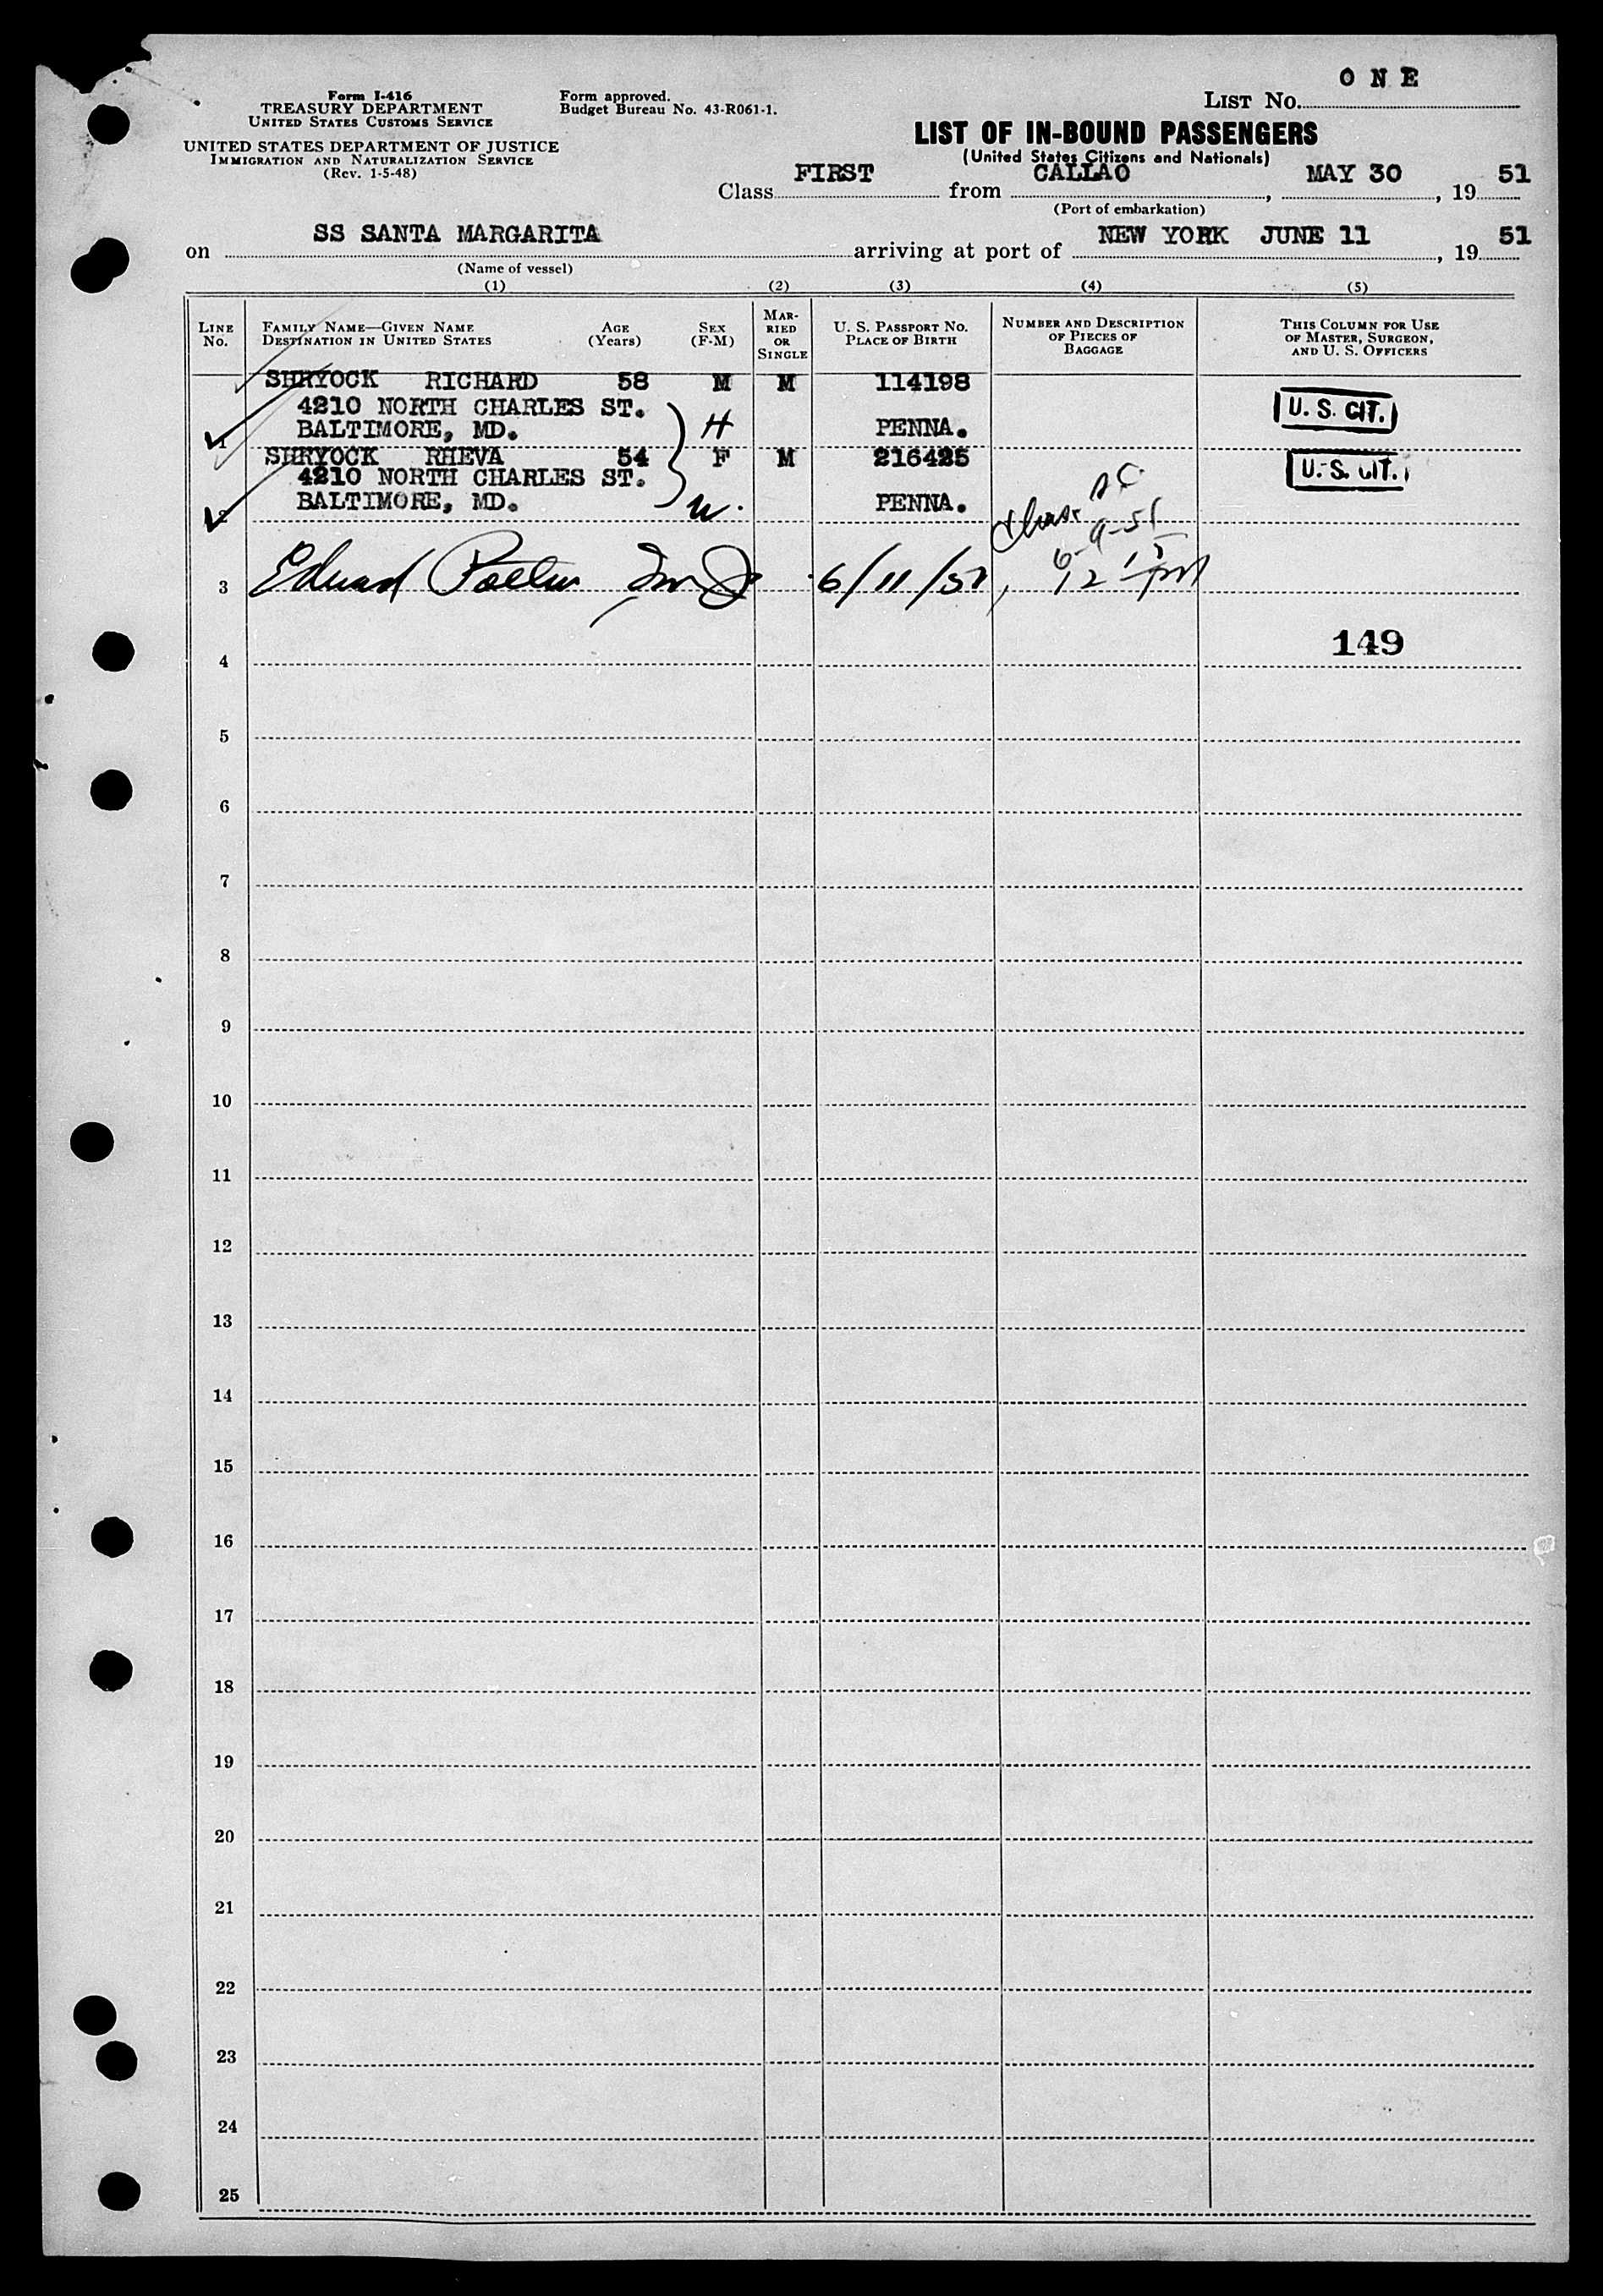 ONE
Form I-416
TREASURY DEPARTMENT
UNITED STATES CUSTOMS SERVICE
UNITED STATES DEPARTMENT OF JUSTICE
IMMIGRATION AND NATURALIZATION SERVICE
(Rev. 1-5-48)
Form approved.
Budget Bureau No. 43-R061-1.
LIST NO.
LIST OF IN-BOUND PASSENGERS
(United States Citizens and Nationals)
Class FIRST from CALLAO, MAY 30, 19 51
(Port of embarkation)
on SS SANTA MARGARITA arriving at port of NEW YORK JUNE 11, 19 51
(Name of vessel)
(1) (2) (3) (4) (5)
LINE NO.
FAMILY NAME—GIVEN NAME
DESTINATION IN UNITED STATES
AGE
(Years)
SEX
(F-M)
MARRIED OR SINGLE
U. S. PASSPORT NO.
PLACE OF BIRTH
NUMBER AND DESCRIPTION
OF PIECES OF
BAGGAGE
THIS COLUMN FOR USE
OF MASTER, SURGEON,
AND U. S. OFFICERS
SHRYOCK RICHARD 58 M M 114198
4210 NORTH CHARLES ST. U. S. CIT.
1 BALTIMORE, MD. H PENNA.
SHRYOCK RHEVA 54 F M 216425
4210 NORTH CHARLES ST. U. S. CIT.
2 BALTIMORE, MD. W. PENNA.
6-9-51
3 Edward 6/11/51 12
149
4
5
6
7
8
9
10
11
12
13
14
15
16
17
18
19
20
21
22
23
24
25